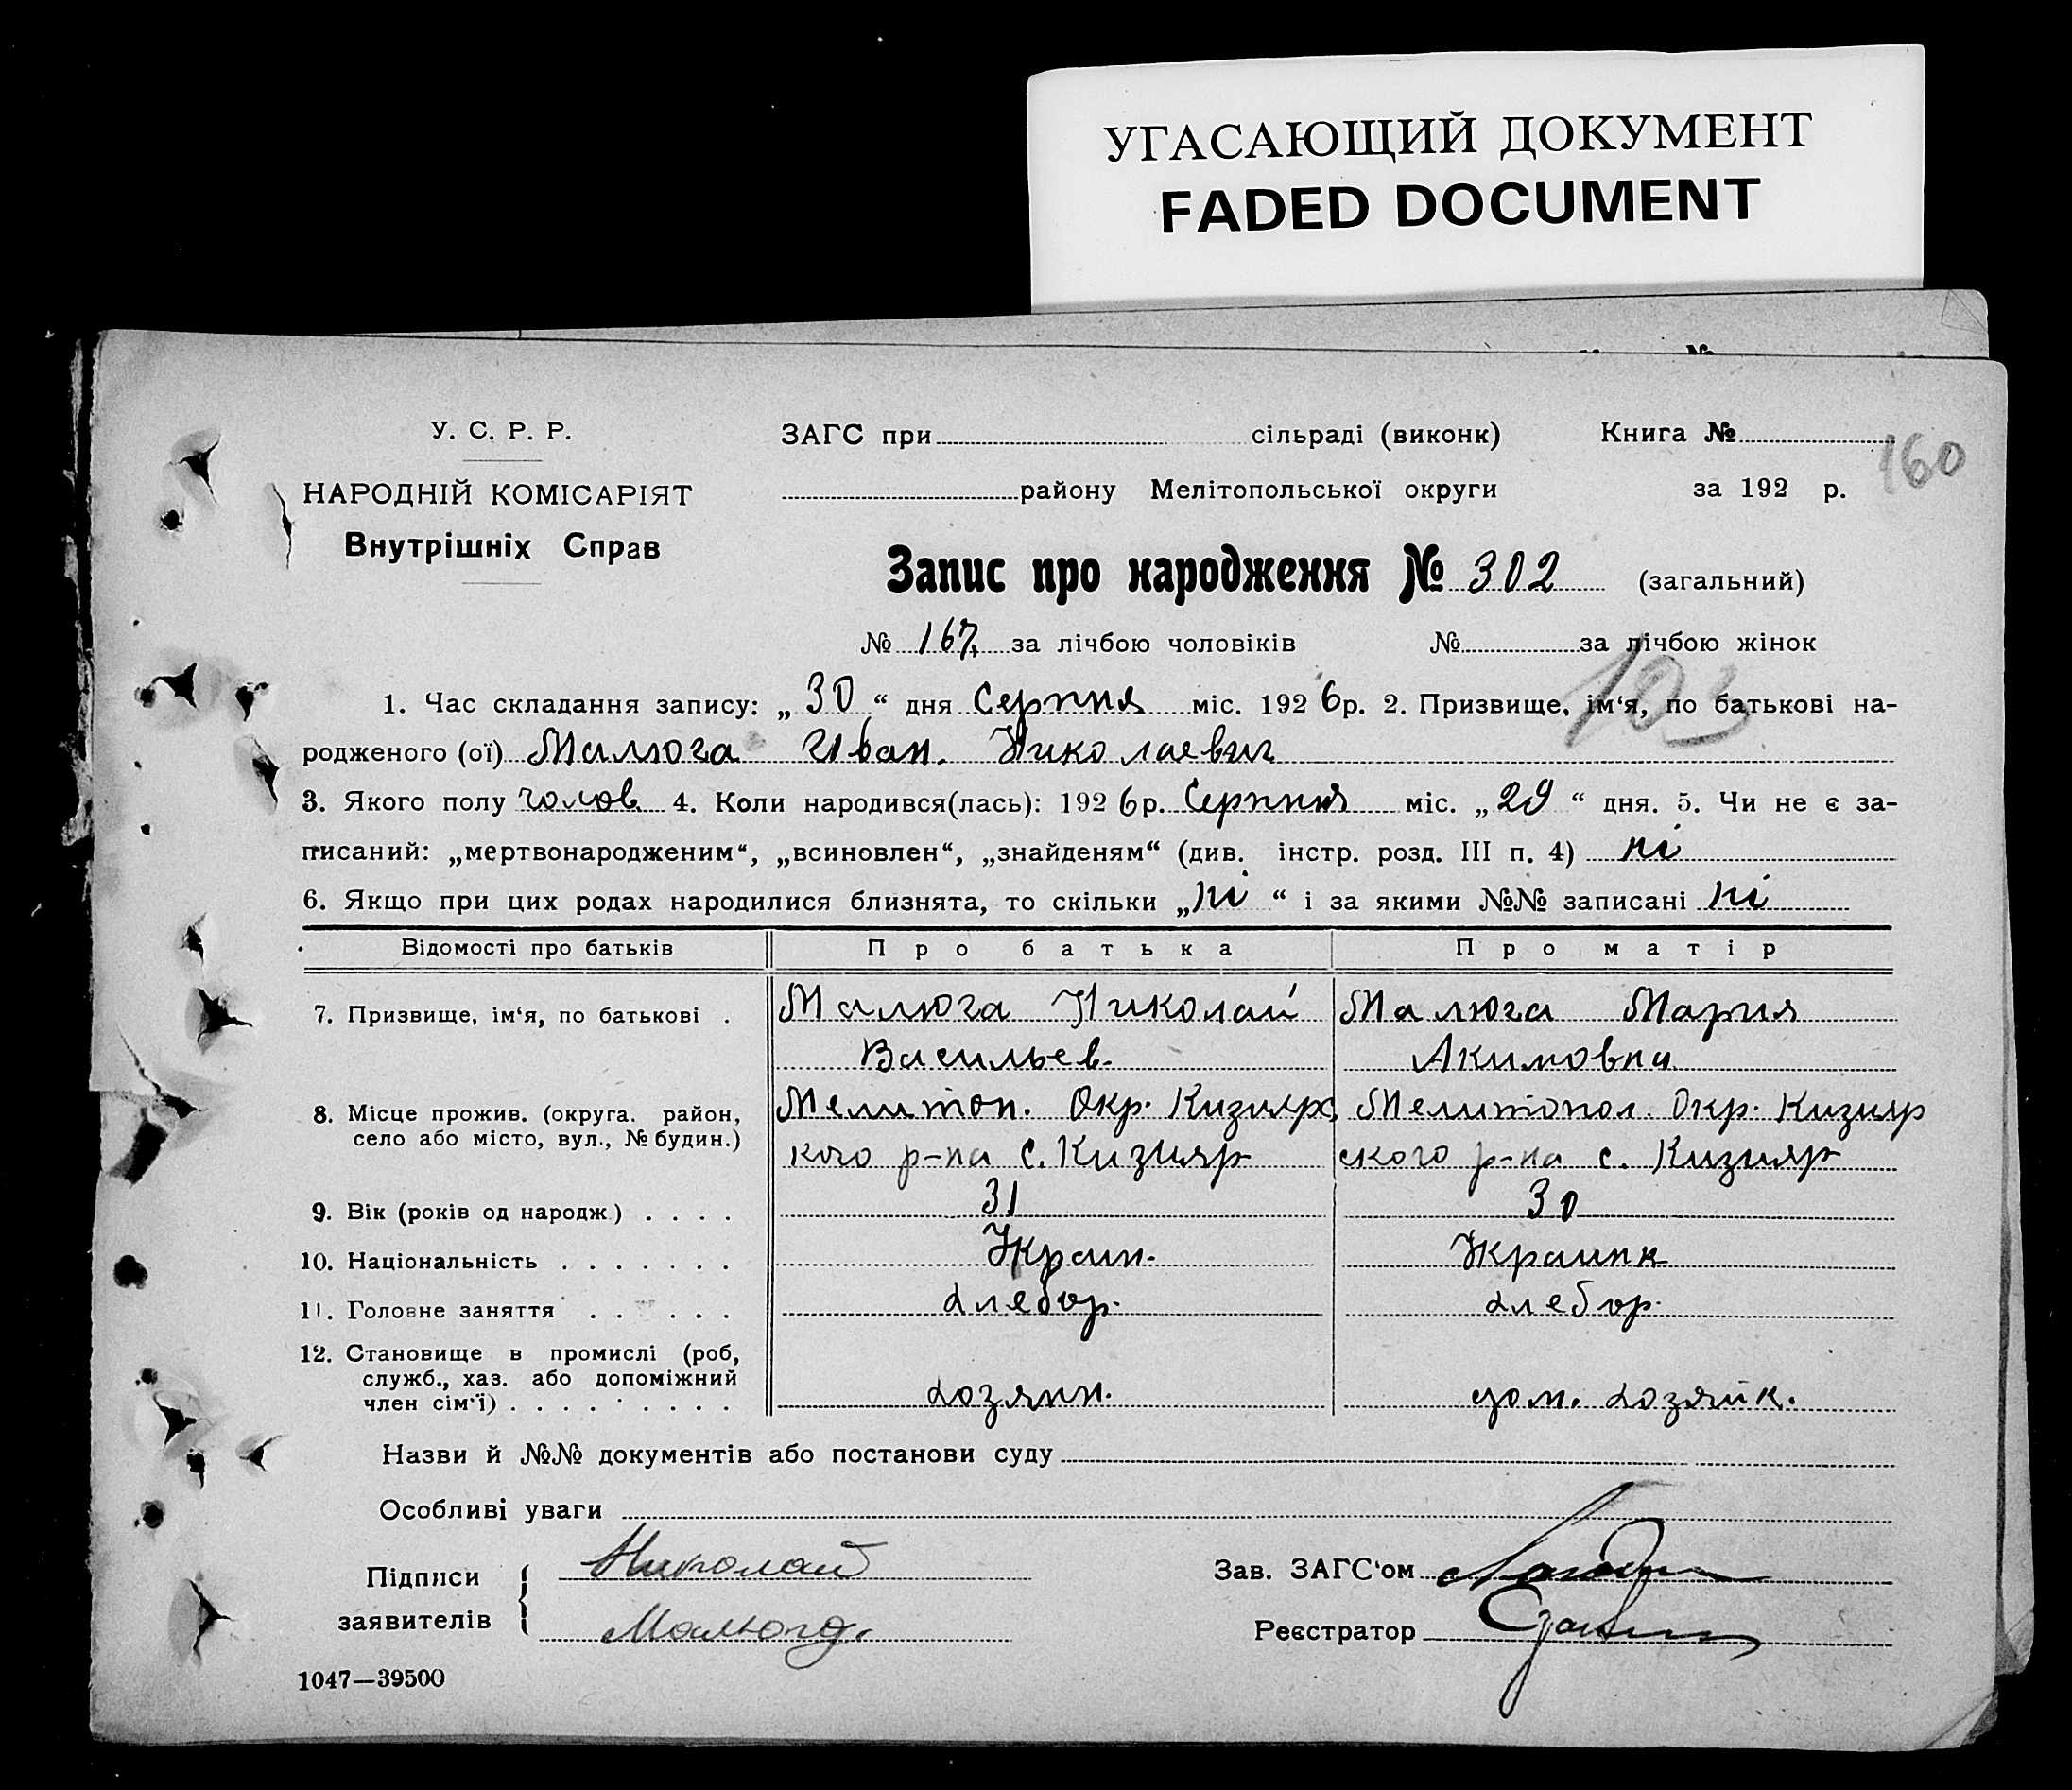 УГАСАЮЩИЙ ДОКУМЕНТ
FADED DOCUMENT
У. С. Р. Р.
НАРОДНІЙ КОМІСАРІЯТ
Внутрішніх Справ
ЗАГС при сільраді (виконк)
Книга №
160
району Мелітопольської округи
за 192 р.
Запис про народження № 302 (загальний)
№ 167 за лічбою чоловіків № за лічбою жінок
103
1. Час складання запису: „ 30 “ дня Серпня міс. 1926 р. 2. Призвище, ім‘я, по батькові на-
родженого (ої) Малюга Иван Николаевич
3. Якого полу чолов. 4. Коли народився(лась): 1926 р. Серпня міс. „ 29 “ дня. 5. Чи не є за-
писаний: „мертвонародженим“, „всиновлен“, „знайденям“ (див. інстр. розд. III п. 4) ні
6. Якщо при цих родах народилися близнята, то скільки „ ні “ і за якими №№ записані ні
Відомості про батьків Про батька Про матір
7. Призвище, ім‘я, по батькові . Малюга Николай Малюга Мария
Васильев. Акимовна
8. Місце прожив. (округа. район, Мелитоп. Окр. Кизиярс Мелитопол. Окр. Кизияр
село або місто, вул., № будин.) кого р-на с. Кизияр ского р-на с. Кизияр
9. Вік (років од народж.) . . . . 31 30
10. Національність . . . . . . . Украин. Украинк
11. Головне заняття . . . . . . хлебор. хлебор.
12. Становище в промислі (роб,
служб., хаз. або допоміжний
член сім‘ї) . . . . . . . . . хозяин. дом. хозяйк.
Назви й №№ документів або постанови суду
Особливі уваги
Підписи
заявителів
Николай
Малюга.
Зав. ЗАГС‘ом
Реєстратор
1047—39500